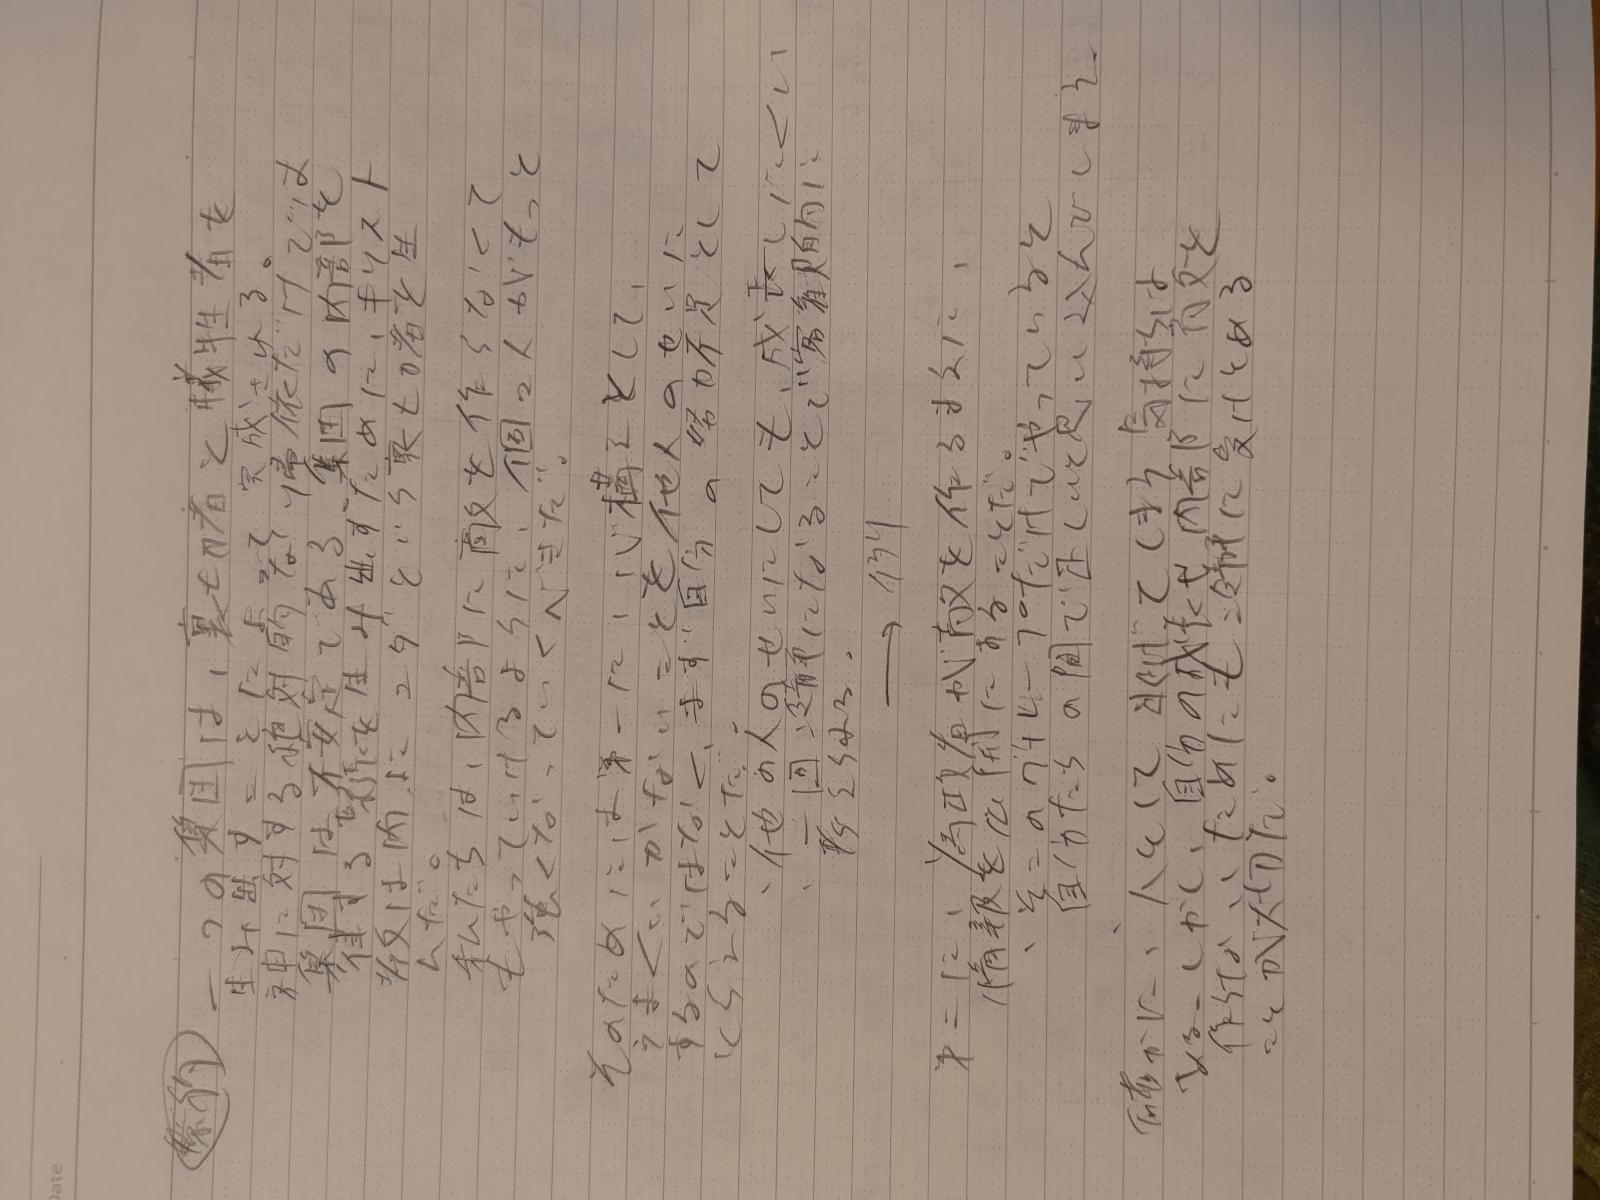 要約
一つの集団は、裏切者と犠牲者を
生み出すことによって完成される。
神に対する絶対的な帰依だけでは
集団は不安定である。集団の内部を
する を生み出すために、キリスト
教は内に ユダという裏切り者を生
んだ。
私たちは、内部に敵を作らなくて
もやっていけるように、個々人がもっと
強くなっていくべきだ。
そのためには第一に、心構えとして、
うまくいかないことを他人のせいに
するのではなく、まず自分の努力不足として
とらえることだ。
、他の人のせいにしても、成長しにくい
、一回 になることで客観的に
とらえる。
→
第二に、為政者が敵を作るまえに、
情報を公開にすることだ。
、そこのグループだけでやっていると
自分たちの間で正しいと思い込んでしまう
、
確かに、人をして してしまう気持ちは
わる しかし、自分の 内部に敵を
作らないためにも冷静に受けとめる
ことが大切だ。
Date